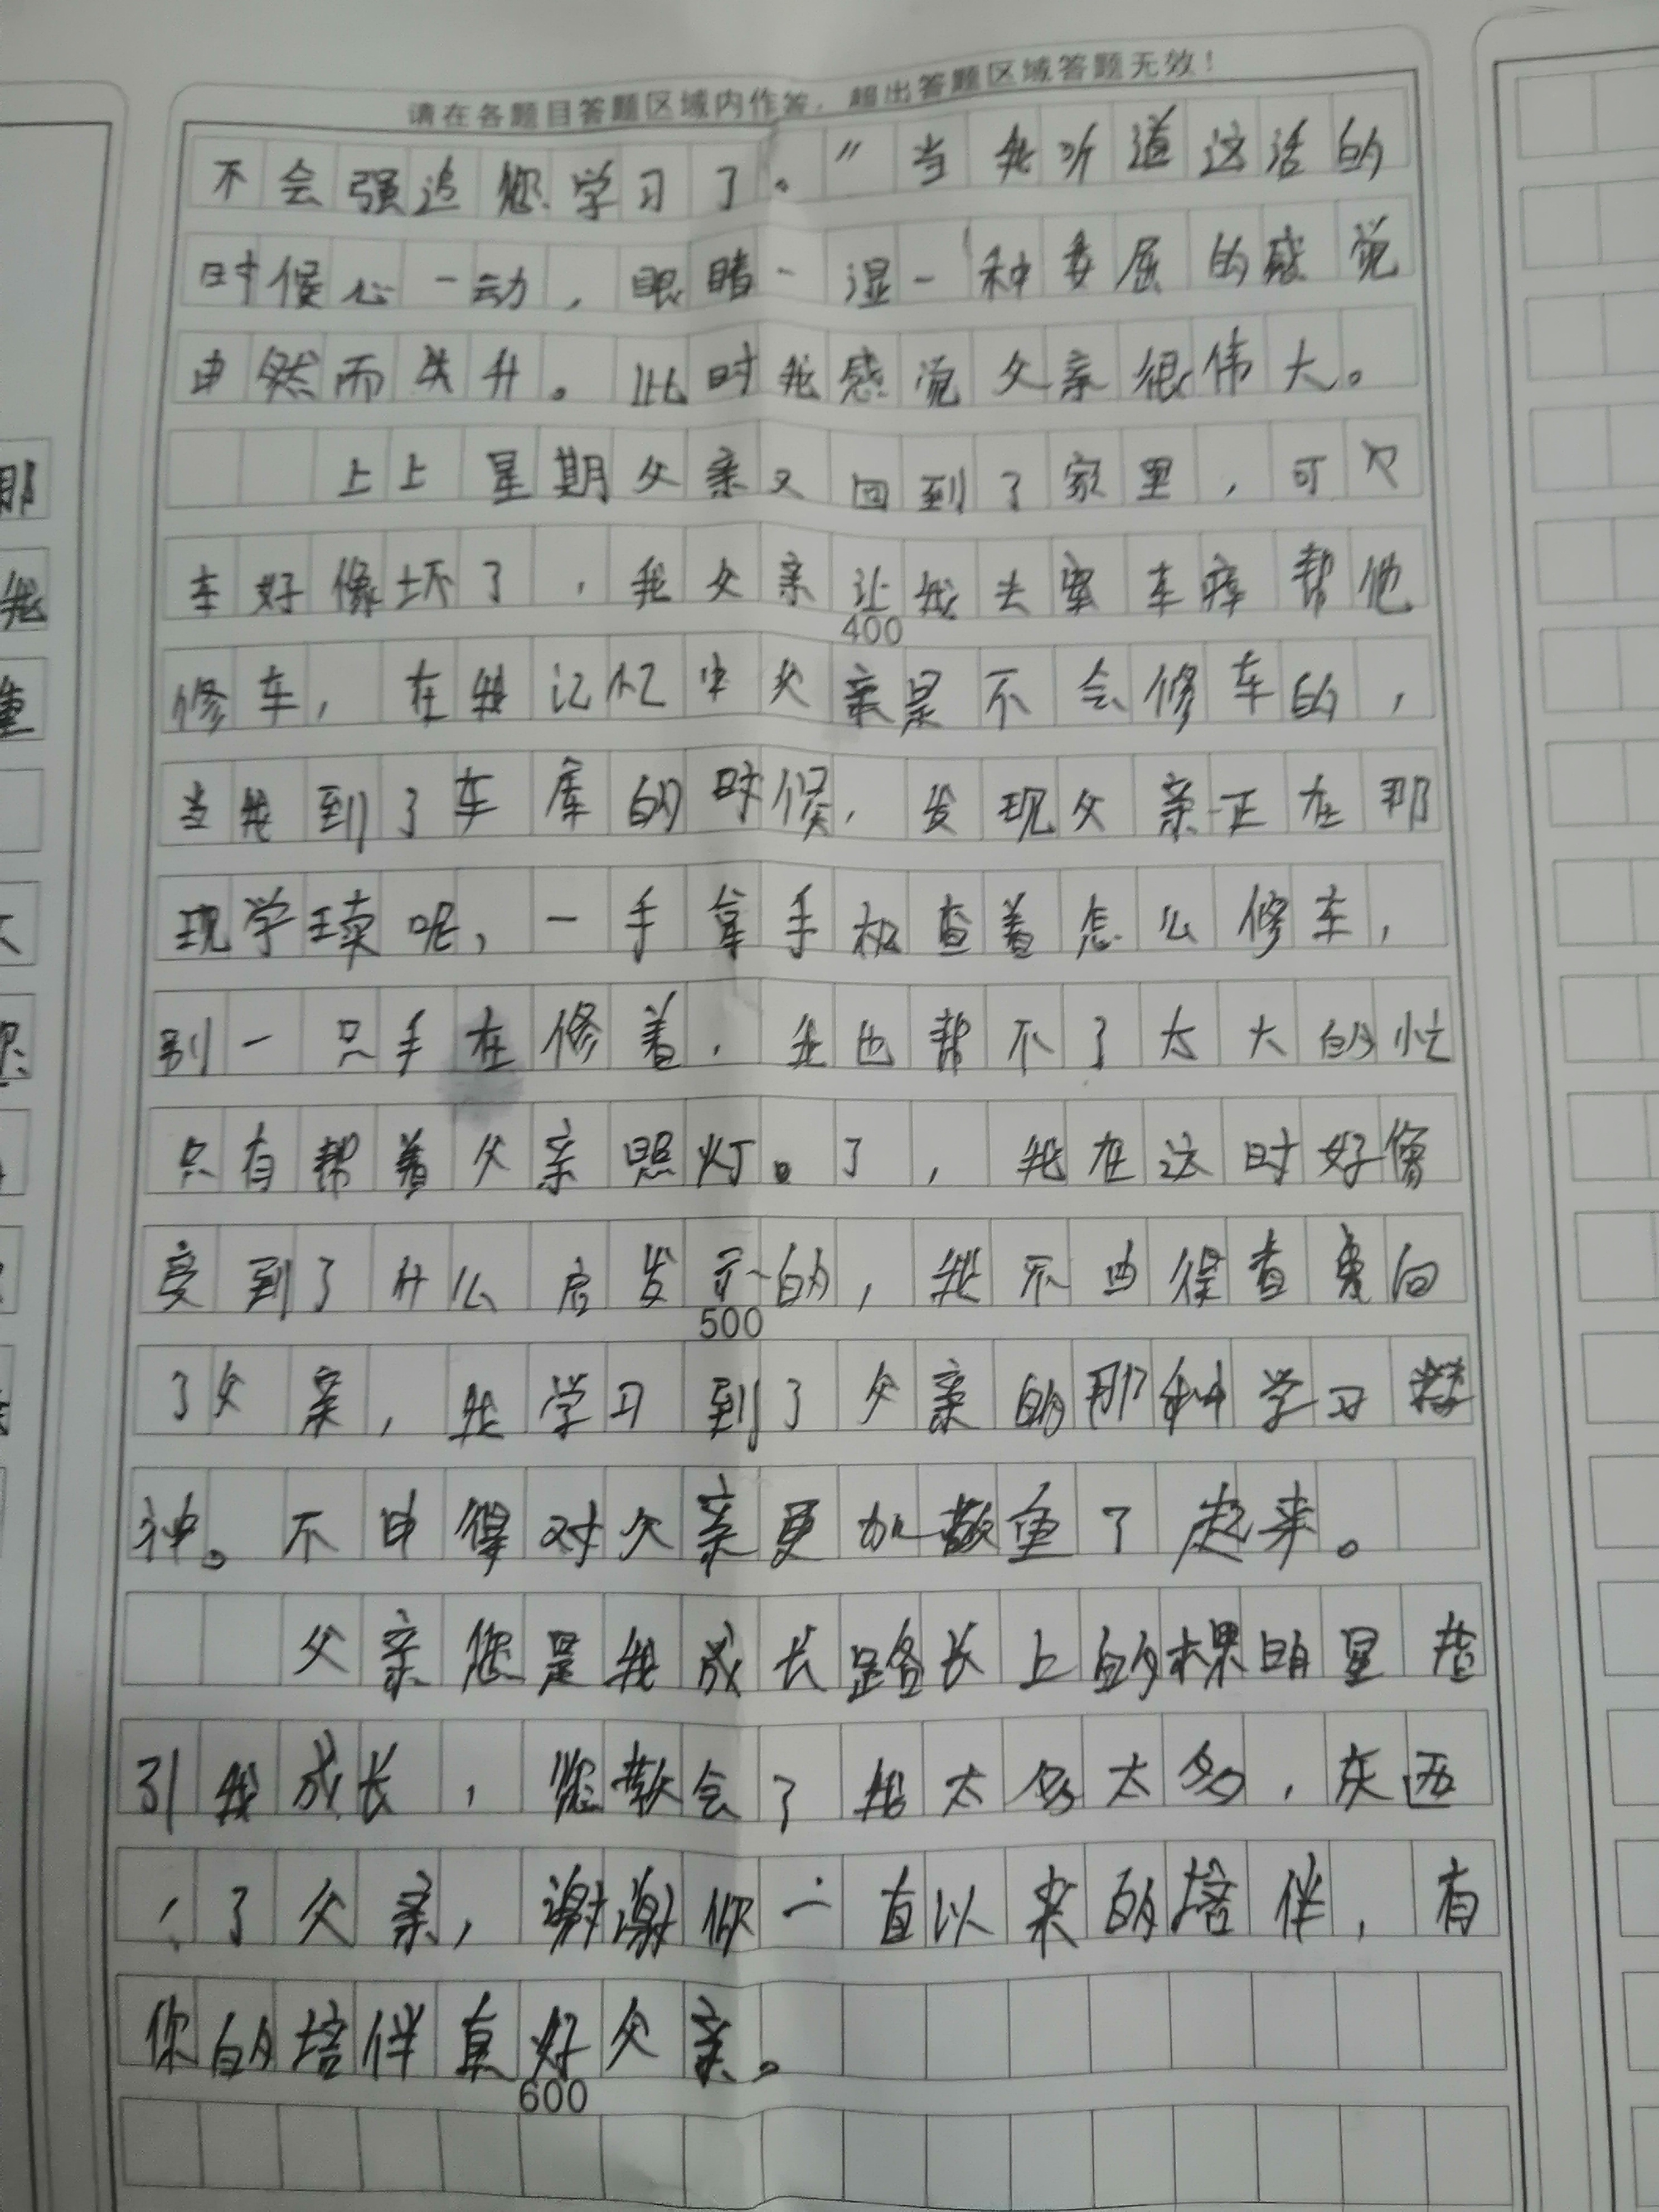 请在各题目答题区域内作答，超出答题区域答题无效！
不会强迫您学习了。”当我听道这话的
时候心一动，眼睛一湿一种委屈的感觉
由然而失升。此时我感觉父亲很伟大。
上上星期父亲又回到了家里，可
车好像坏了，我父亲让我去车库帮他
400
修车，在我记忆中父亲是不会修车的，
当我到了车库的时候，发现父亲正在那
现学现卖呢，一手拿手机查着怎么修车，
别一只手在修着，我也帮不了大大的忙
只有帮着父亲照灯。了，我在这时好像
受到了什么启发示的，我不由得看向
500
了父亲，我学习到了父亲的那种学习精
神。不由得对父亲更加敬重了起来。
父亲您是我成长路长上的棵明星指
引我成长，您教会了我太多太多，
了父亲，谢谢你一直以来的培伴，有
你的培伴真好父亲。
600
那
我
重